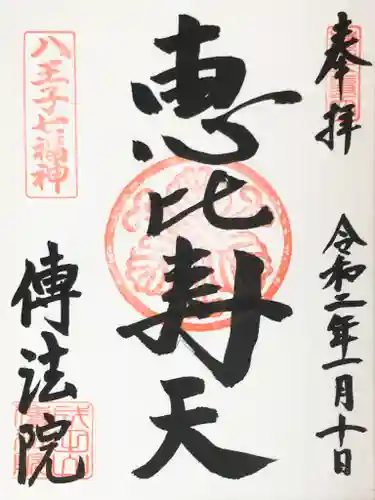 奉拝
令和二年一月十日
恵比寿天
八王子七福神
傳法院